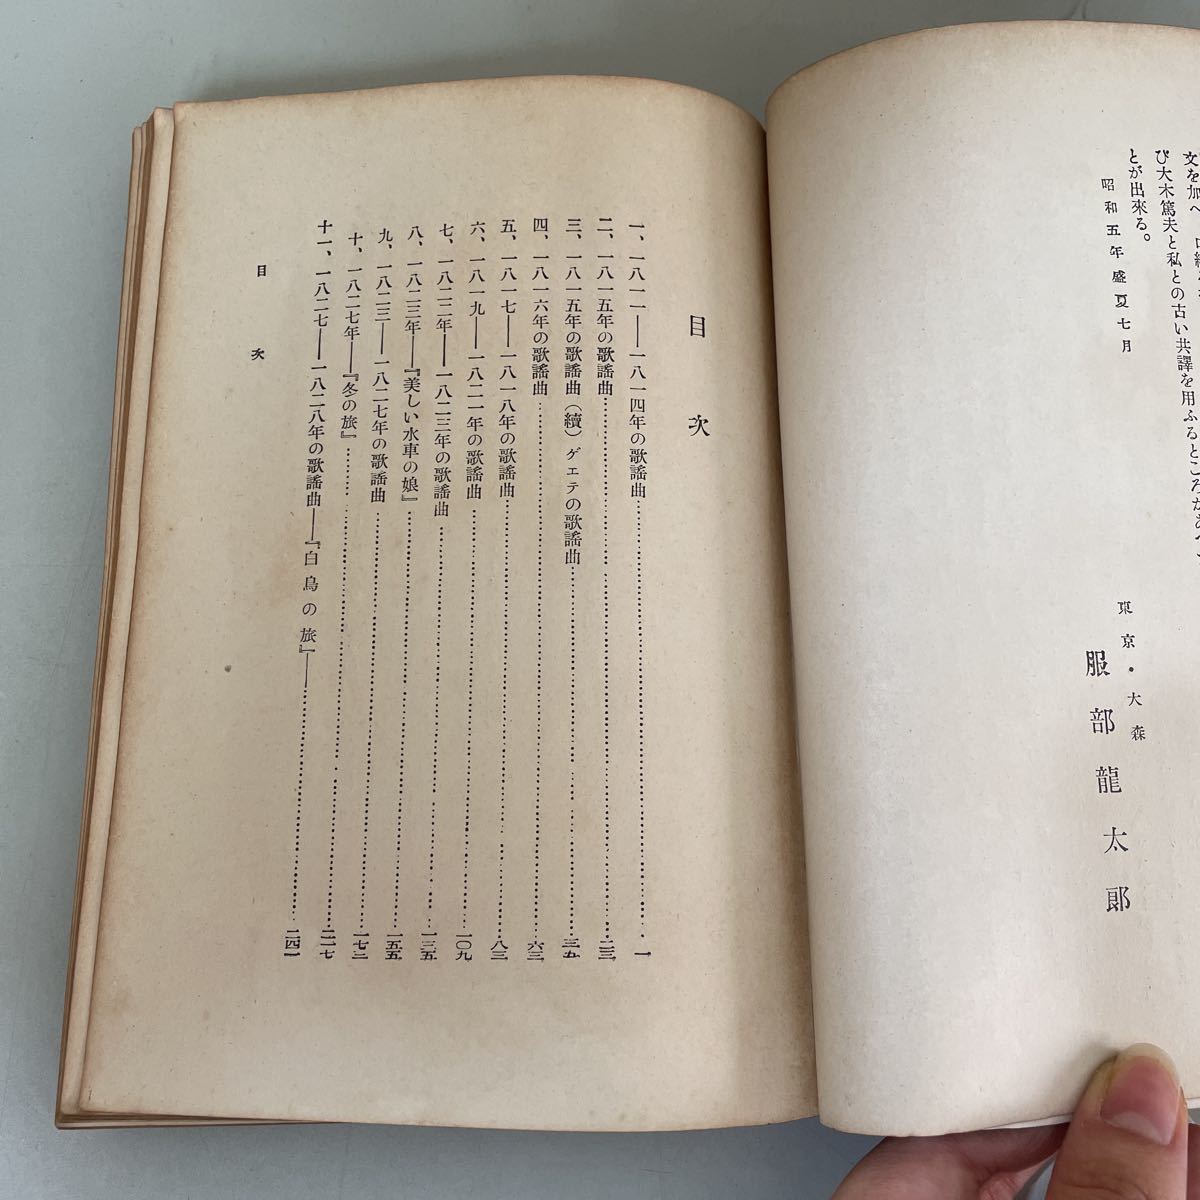 文を加へ、
び大木篤夫と私との古い共譯を用ふるところがあ
とが出來る。
昭和五年盛夏七月
東京・大森
服部龍太郎
目次
一、一八一一——一八一四年の歌謠曲 一
二、一八一五年の歌謠曲 二三
三、一八一五年の歌謠曲(續)ゲェテの歌謠曲 三五
四、一八一六年の歌謠曲 六三
五、一八一七——一八一八年の歌謠曲 八三
六、一八一九——一八二一年の歌謠曲 一〇九
七、一八二二年——一八二三年の歌謠曲 一三五
八、一八二三年——『美しい水車の娘』 一五五
九、一八二三——一八二七年の歌謠曲 一七二
十、一八二七年——『冬の旅』 二一七
十一、一八二七——一八二八年の歌謠曲——『白鳥の旅』—— 二四一
目次